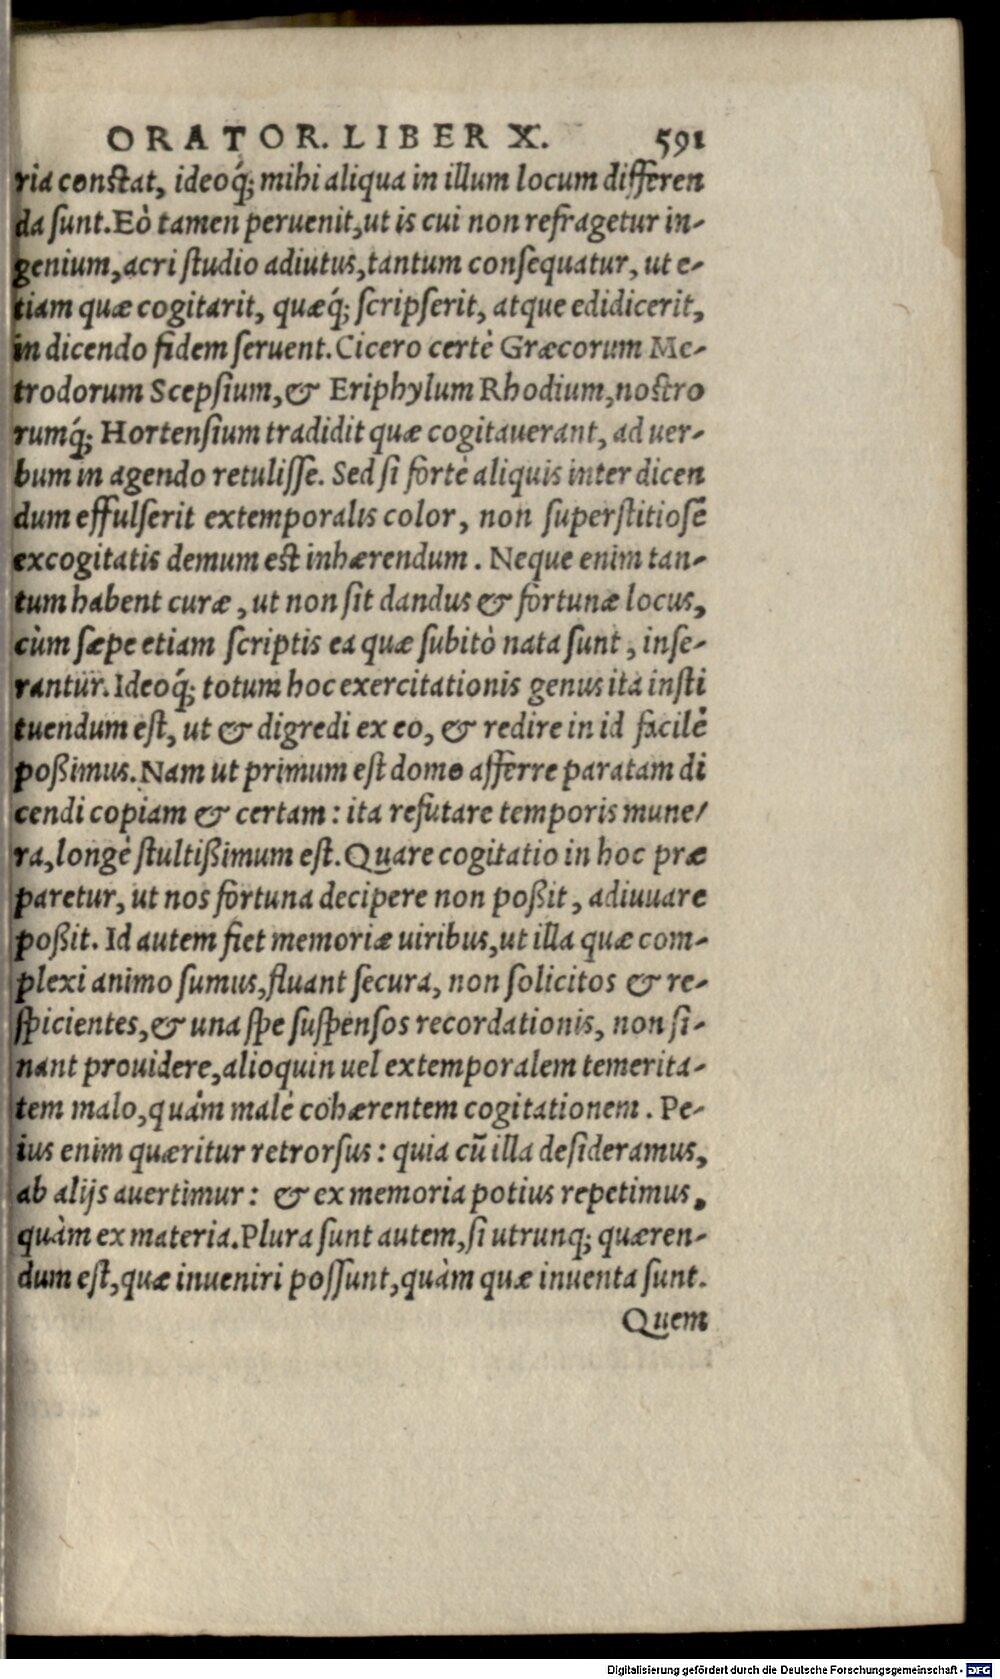 ORATOR. LIBER X. 591
ria constat, ideoq́; mihi aliqua in illum locum differen
da sunt. Eò tamen peruenit, ut is cui non refragetur in-
genium, acri studio adiutus, tantum consequatur, ut e-
tiam quæ cogitarit, quæq́; scripserit, atque edidicerit,
in dicendo fidem seruent. Cicero certè Græcorum Me-
trodorum Scepsium, & Eriphylum Rhodium, nostro
rumq́; Hortensium tradidit quæ cogitauerant, ad uer-
bum in agendo retulisse. Sed si fortè aliquis inter dicen
dum effulserit extemporalis color, non superstitiosè
excogitatis demum est inhærendum. Neque enim tan-
tum habent curæ, ut non sit dandus & fortunæ locus,
cùm sæpe etiam scriptis ea quæ subitò nata sunt, inse-
rantur. Ideoq́; totum hoc exercitationis genus ita insti
tuendum est, ut & digredi ex eo, & redire in id facilè
poßimus. Nam ut primum est domo afferre paratam di
cendi copiam & certam: ita refutare temporis mune/
ra, longè stultißimum est. Quare cogitatio in hoc præ
paretur, ut nos fortuna decipere non poßit, adiuuare
poßit. Id autem fiet memoriæ uiribus, ut illa quæ com-
plexi animo sumus, fluant secura, non solicitos & re-
spicientes, & una spe suspensos recordationis, non si-
nant prouidere, alioquin uel extemporalem temerita-
tem malo, quàm malè cohærentem cogitationem. Pe-
ius enim quæritur retrorsus: quia cũ illa desideramus,
ab alijs auertimur: & ex memoria potius repetimus,
quàm ex materia. Plura sunt autem, si utrunq; quæren-
dum est, quæ inueniri possunt, quàm quæ inuenta sunt.
Quem
Digitalisierung gefördert durch die Deutsche Forschungsgemeinschaft - DFG